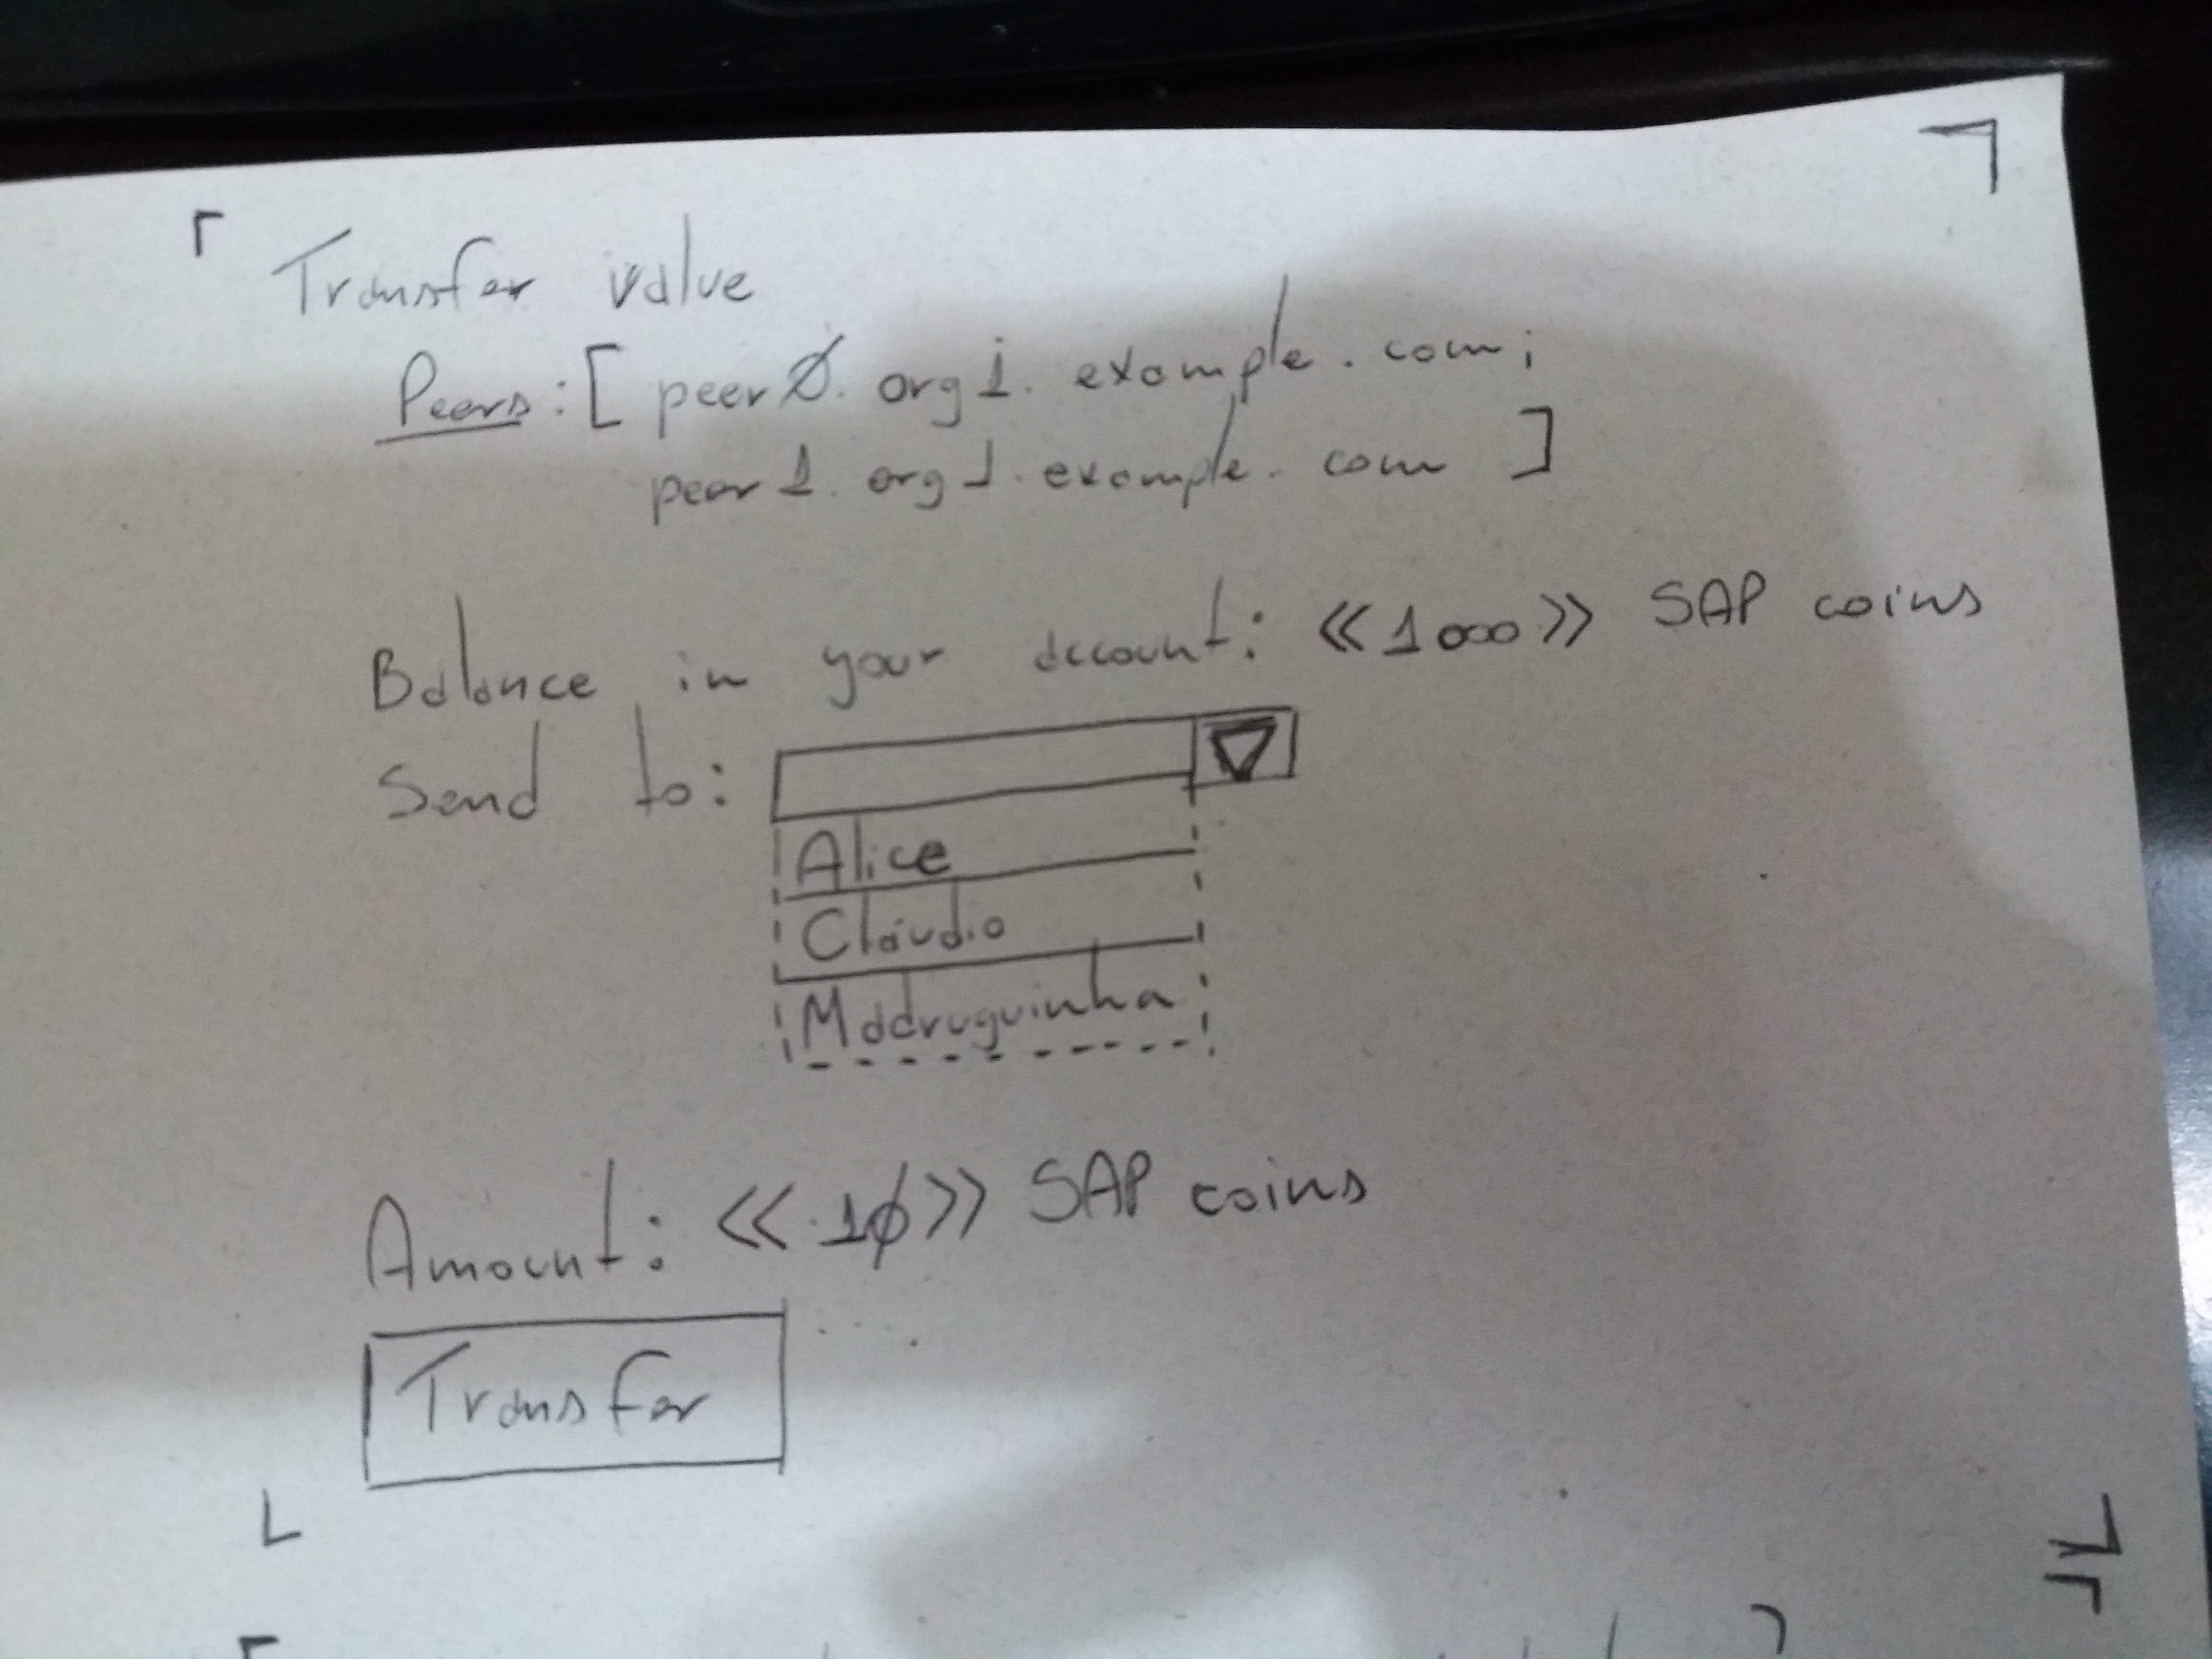 Transfer value
Peers: [ peer0.org1.example.com;
peer1.org1.example.com ]
Balance in your account: <<1000>> SAP coins
Send to:
Alice
Cláudio
Madruguinha
Amount: <<10>> SAP coins
Transfer